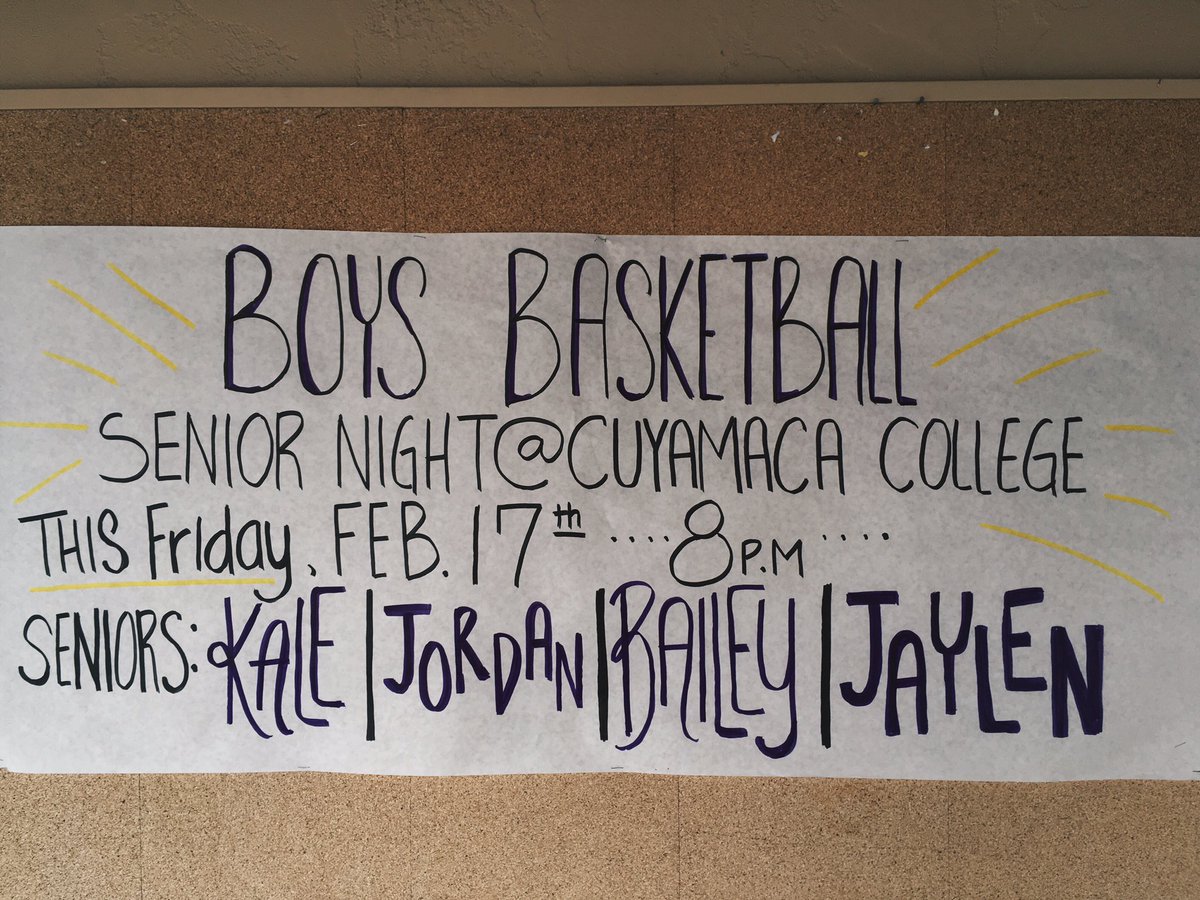 BOYS BASKETBALL
SENIOR NIGHT@CUYAMACA COLLEGE
THIS FrIday, FEB. 17th ....8P.M ....
SENIORS: KALE | JORDAN | BAILEY | JAYLEN